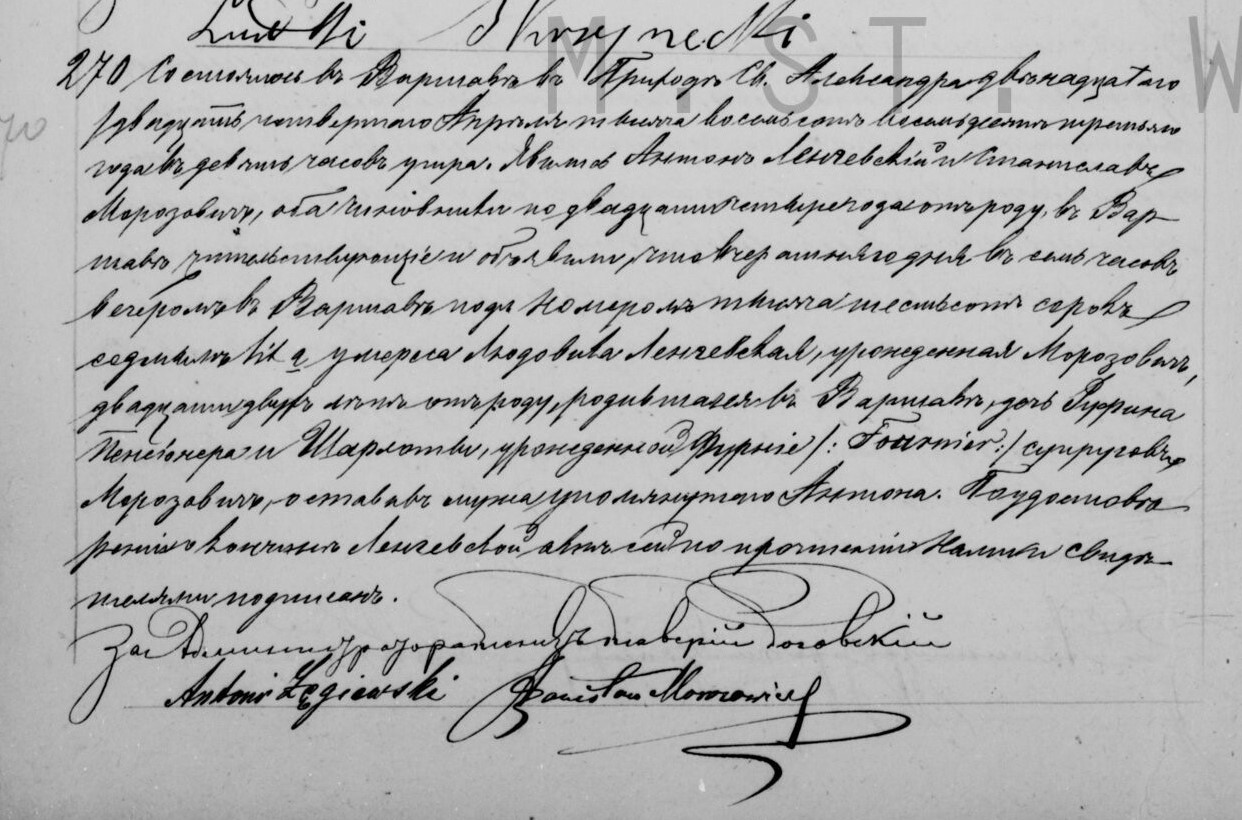 M.ST.W
270 Состоялось въ Варшавѣ въ Приходѣ Св. Александра двѣнадцатаго
/двадцать четвертаго Апрѣля тысяча восемьсотъ восемьдесятъ третьяго
года въ девять часовъ утра. Явились Антонъ Ленчевскій и Станиславъ
Морозовичъ, оба чиновники по двадцати четыре года отъ роду, въ Вар-
шавѣ жительствующіе и объявили, что вчерашняго дня въ семь часовъ
вечеромъ въ Варшавѣ подъ номеромъ тысяча шестьсотъ сорокъ
седмымъ lit a умерла Людовика Ленчевская, урожденная Морозовичъ,
двадцати двухъ лѣтъ отъ роду, родившаяся въ Варшавѣ, дочь Руфина
Пенсіонера и Шарлотты, урожденной Фурніе /: Fournier :/ супруговъ
Морозовичъ, оставивъ мужа упомянутаго Антона. По удостовѣ-
реніи о кончинѣ Ленчевской актъ сей по прочтеніи Нами и свидѣ-
телями подписанъ.
Antoni Łęgiewski Stanisław Morozowicz